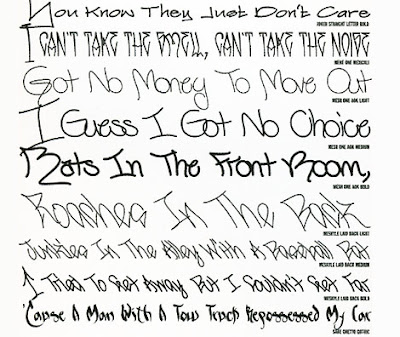 You Know They Just Don't Care
JOKER STRAIGHT LETTER BOLD
I CAN'T TAKE THE SMELL, CAN'T TAKE THE NOISE
MEXE ONE
Got No Money To Move Out
MESH ONE AOK LIGHT
I Guess I Got No Choice
MESH ONE AOK MEDIUM
Rats In The Front Room,
MESH ONE AOK BOLD
Roaches In The Back
MESHYLE LAID BACK LIGHT
Junkies In The Alley With A Baseball Bat
MESHYLE LAID BACK MEDIUM
I Tried To Get Away But I Couldn't Get Far
MESHYLE LAID BACK BOLD
'Cause A Man With A Tow Truck Repossessed My Car
SABE GHETTO GOTHIC